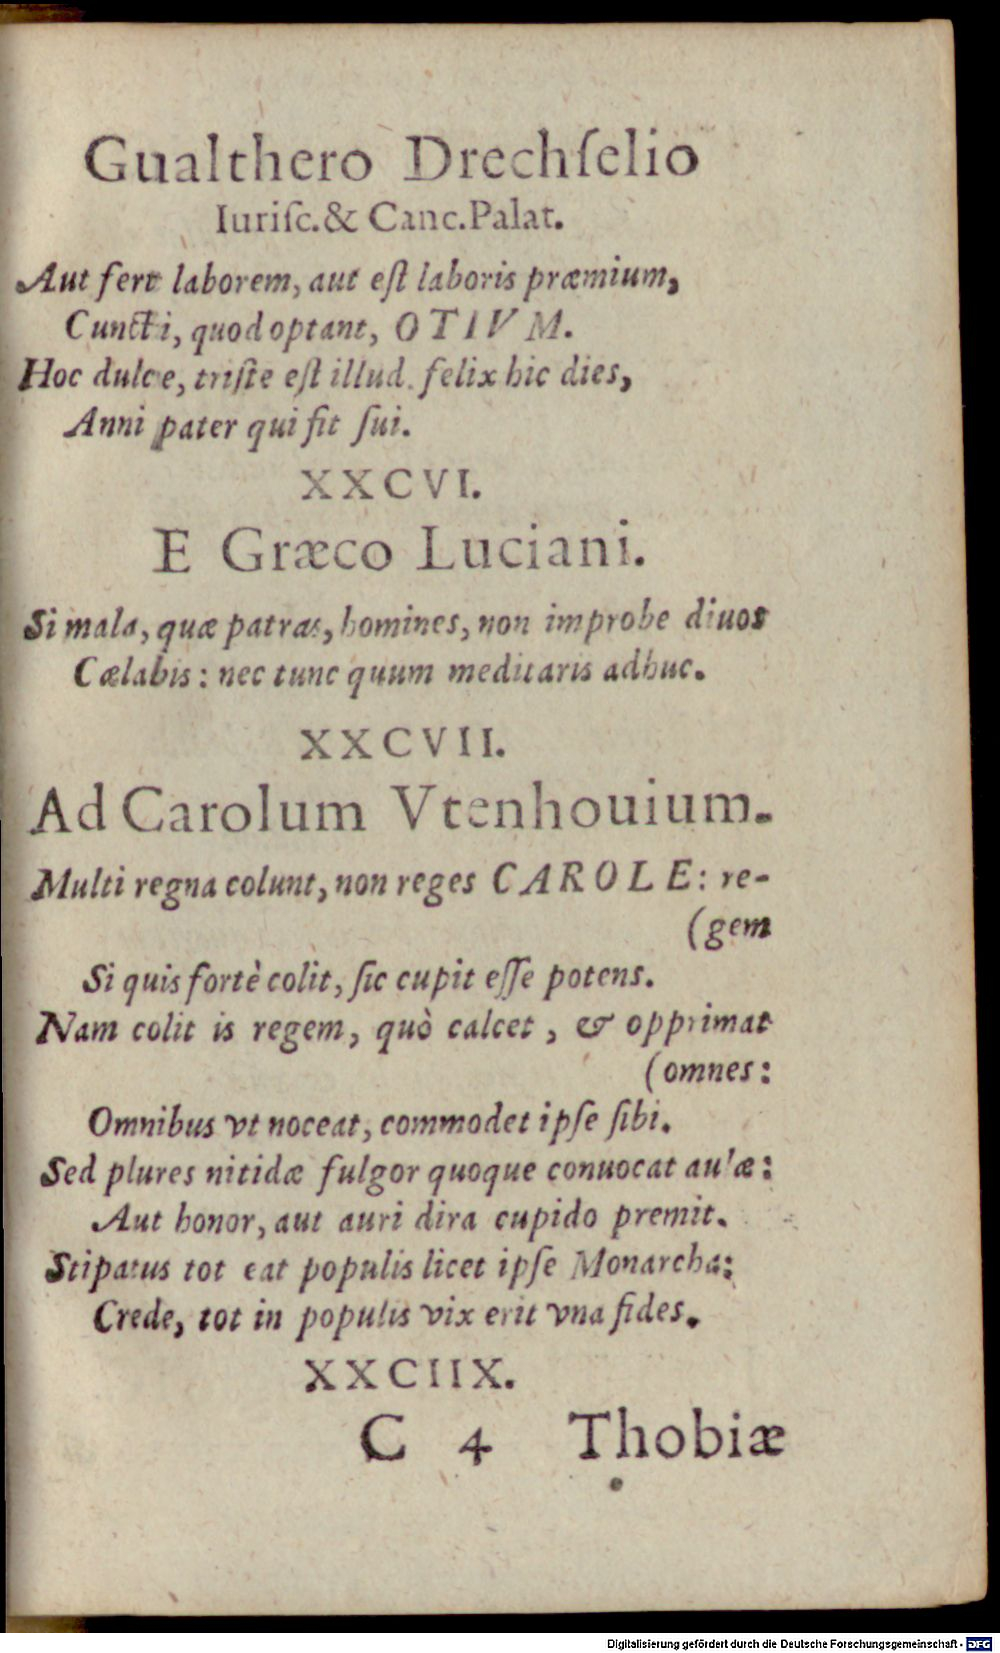 Gualthero Drechſelio
Iuriſc. & Canc. Palat.
Aut fert laborem, aut eſt laboris præmium,
Cuncti, quod optant, OTIVM.
Hoc dulce, triſte eſt illud. felix hic dies,
Anni pater qui fit ſui.
XXCVI.
E Græco Luciani.
Si mala, quæ patras, homines, non improbe diuos
Cælabis: nec tunc quum meditaris adhuc.
XXCVII.
Ad Carolum Vtenhouium.
Multi regna colunt, non reges CAROLE: re-
(gem
Si quis fortè colit, ſic cupit eſſe potens.
Nam colit is regem, quò calcet, & opprimat
(omnes:
Omnibus vt noceat, commodet ipſe ſibi.
Sed plures nitidæ fulgor quoque conuocat aulæ:
Aut honor, aut auri dira cupido premit.
Stipatus tot eat populis licet ipſe Monarcha:
Crede, tot in populis vix erit vna fides.
XXCIIX.
C 4 Thobiæ
Digitalisierung gefördert durch die Deutsche Forschungsgemeinschaft - DFG